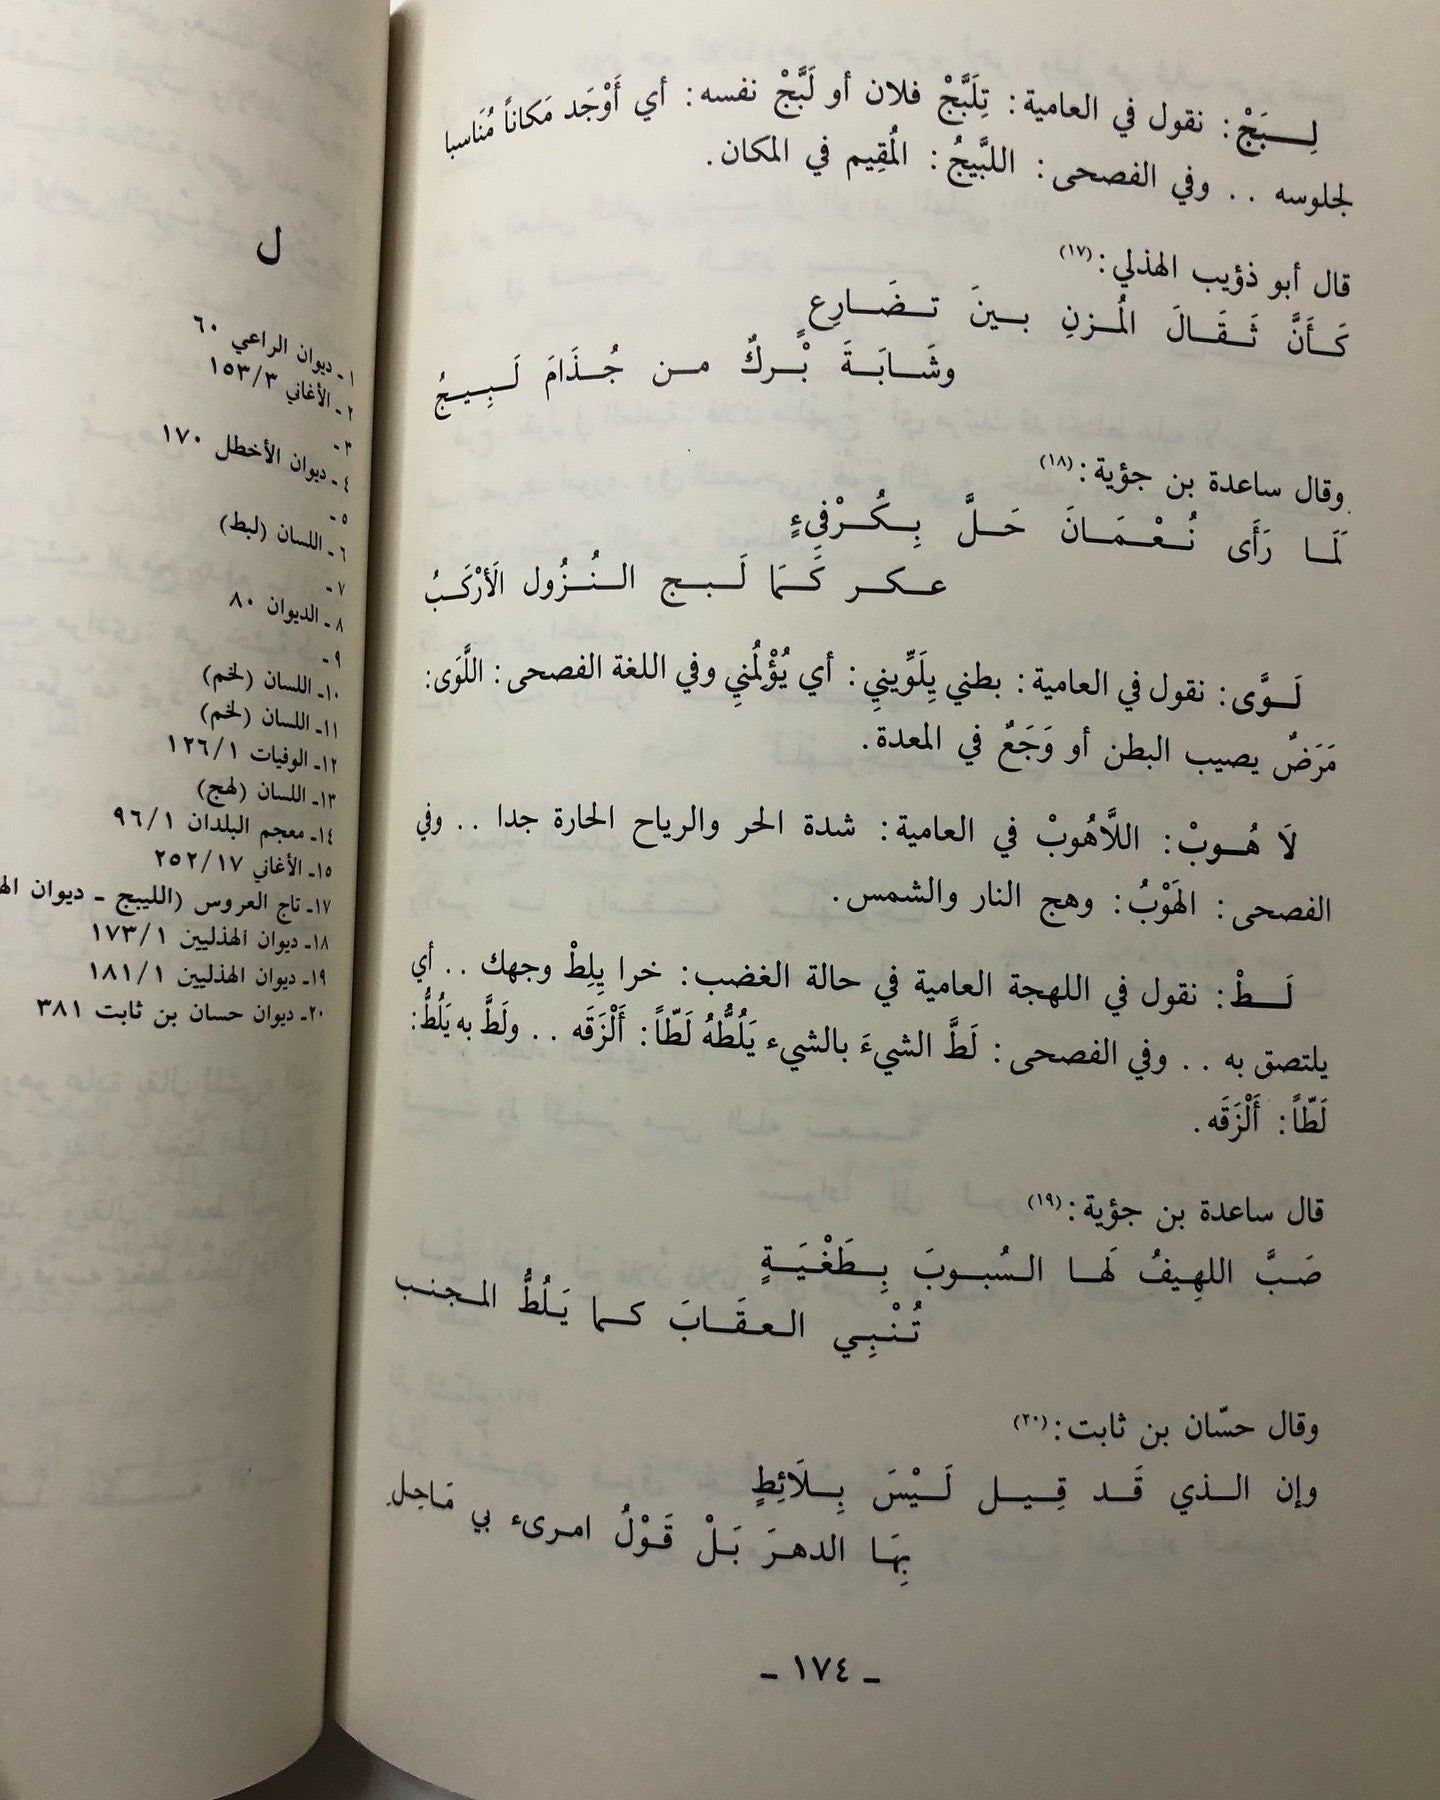 لِـبَجْ: نقول في العامية: تِلَبَّجْ فلان أو لَبَّجْ نفسه: أي أَوْجَد مَكاناً مُنَاسبا
لجلوسه .. وفي الفصحى: اللبَّيجُ: المُقِيم في المكان.
قال أبو ذؤيب الهذلي:(١٧)
كَـأَنَّ ثَـقَـالَ المُـزنِ بـينَ تـضَـارِعٍ
وشَـابَـةَ بْـركٌ مـن جُـذَامَ لَـبِـيـجُ
وقال ساعدة بن جؤية:(١٨)
لَمَـا رَأَى نُـعْـمَـانَ حَـلَّ بِـكُـرْفِيءٍ
عـكـر كَـمَا لَـبـج الـنُـزُول الَأرْكَـبُ
لَـوَّى: نقول في العامية: بطني يِلَوِّيني: أي يُؤْلِمُني وفي اللغة الفصحى: اللَّوَى:
مَرَضٌ يصيب البطن أو وَجَعٌ في المعدة.
لَا هُـوبْ: اللَّاهُوبْ في العامية: شدة الحر والرياح الحارة جدا .. وفي
الفصحى: الهَوْبُ: وهج النار والشمس.
لَـطْ: نقول في اللهجة العامية في حالة الغضب: خرا يِلِطْ وجهك .. أي
يلتصق به .. وفي الفصحى: لَطَّ الشيءَ بالشيء يَلُطُّهُ لَطّاً: أَلْزَقَه .. ولَطَّ به يَلُطُّ:
لَطّاً: أَلْزَقَه.
قال ساعدة بن جؤية:(١٩)
صَـبَّ اللهِـيفُ لَهـا الـسُبـوبَ بِـطَغْـيَـةٍ
تُـنْـبِـي الـعـقَـابَ كـما يَـلُطُّ المـجنـب
وقال حسّان بن ثابت:(٢٠)
وإن الـذي قَـد قِـيـل لَـيْسَ بِـلَائِطٍ
بِهَـا الدهـرَ بَـلْ قَـوْلُ امـرىء بي مَـاحِلِ
ـ ١٧٤ ـ
ل
١ـ ديوان الراعي ٦٠
٢ـ الأغاني ١٥٣/٣
٣ـ
٤ـ ديوان الأخطل ١٧٠
٥ـ
٦ـ اللسان (لبط)
٧ـ
٨ـ الديوان ٨٠
٩ـ
١٠ـ اللسان (لخم)
١١ـ اللسان (لخم)
١٢ـ الوفيات ١٢٦/١
١٣ـ اللسان (لهج)
١٤ـ معجم البلدان ٩٦/١
١٥ـ الأغاني ٢٥٢/١٧
١٧ـ تاج العروس (الليبج ـ ديوان
١٨ـ ديوان الهذليين ١٧٣/١
١٩ـ ديوان الهذليين ١٨١/١
٢٠ـ ديوان حسان بن ثابت ٣٨١